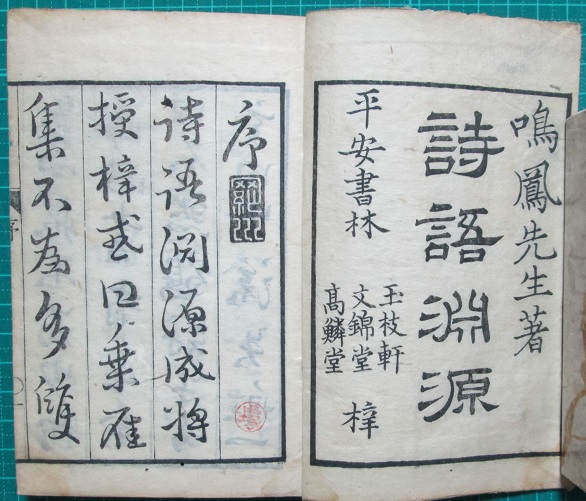 鳴鳳先生著
詩語淵源
平安書林
玉枝軒
文錦堂
高鱗堂
梓
序
詩語淵源成將
授梓或曰乗雁
集不為多雙